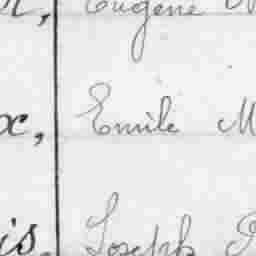 Eugène
x, Emile M
is Joseph P